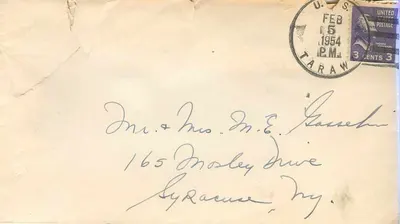 U. S.
FEB
5
1954
P.M.
TARAW
UNITED
POSTAGE
3 CENTS 3
Mr. & Mrs. M. E.
165 Mosley Drive
Syracuse, Ny.